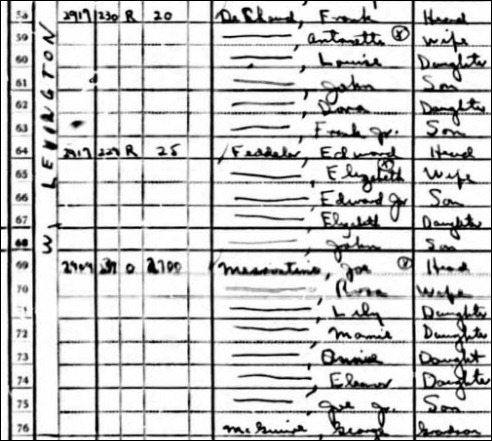 W. LEXINGTON
58 2917 230 R 20 Frank Head
59 Antonette Ⓧ Wife
60 Louise Daughter
61 John Son
62 Dora Daughter
63 Frank Jr. Son
64 2917 229 R 25 Edward Head
65 Elizabeth Ⓧ Wife
66 Edward Jr Son
67 Elizabeth Daughter
68 John Son
69 2909 O Joe Ⓧ Head
70 Rosa Wife
71 Lily Daughter
72 Mamie Daughter
73 Annie Daught
74 Eleanor Daughter
75 Joe Jr. Son
76 McGuire George Grandson